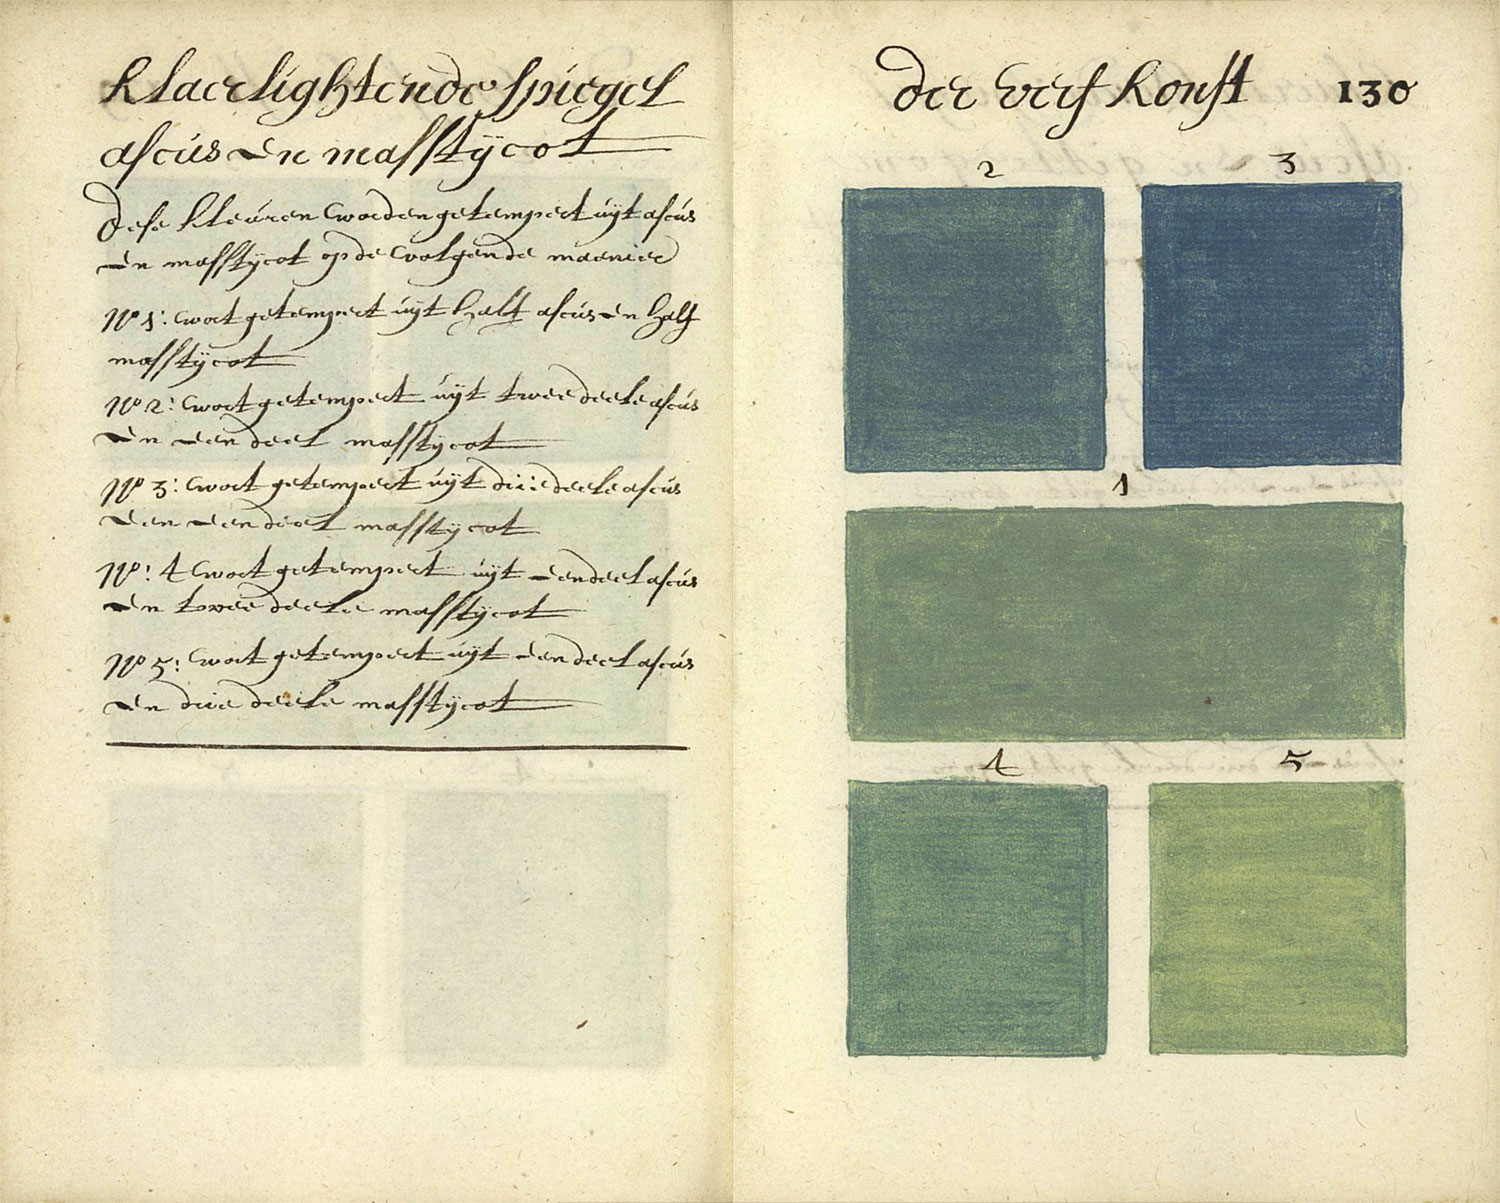 Klaerlightende Spiegel
ascus en masstycot
dese kleuren worden getempert uÿt ascus
en masstÿcot op de volgende maenier
No 1: wort getempert uÿt half ascus en half
masstÿcot
No 2: wort getempert uÿt twee deele ascus
en een deel masstÿcot
No 3: wort getempert uÿt drie deele ascus
en een deel masstÿcot
No: 4 wort getempert uÿt een deel ascus
en twee deele masstÿcot
No 5: wort getempert uÿt een deel ascus
en drie deele masstÿcot
der verf konst 130
2 3
1
4 5